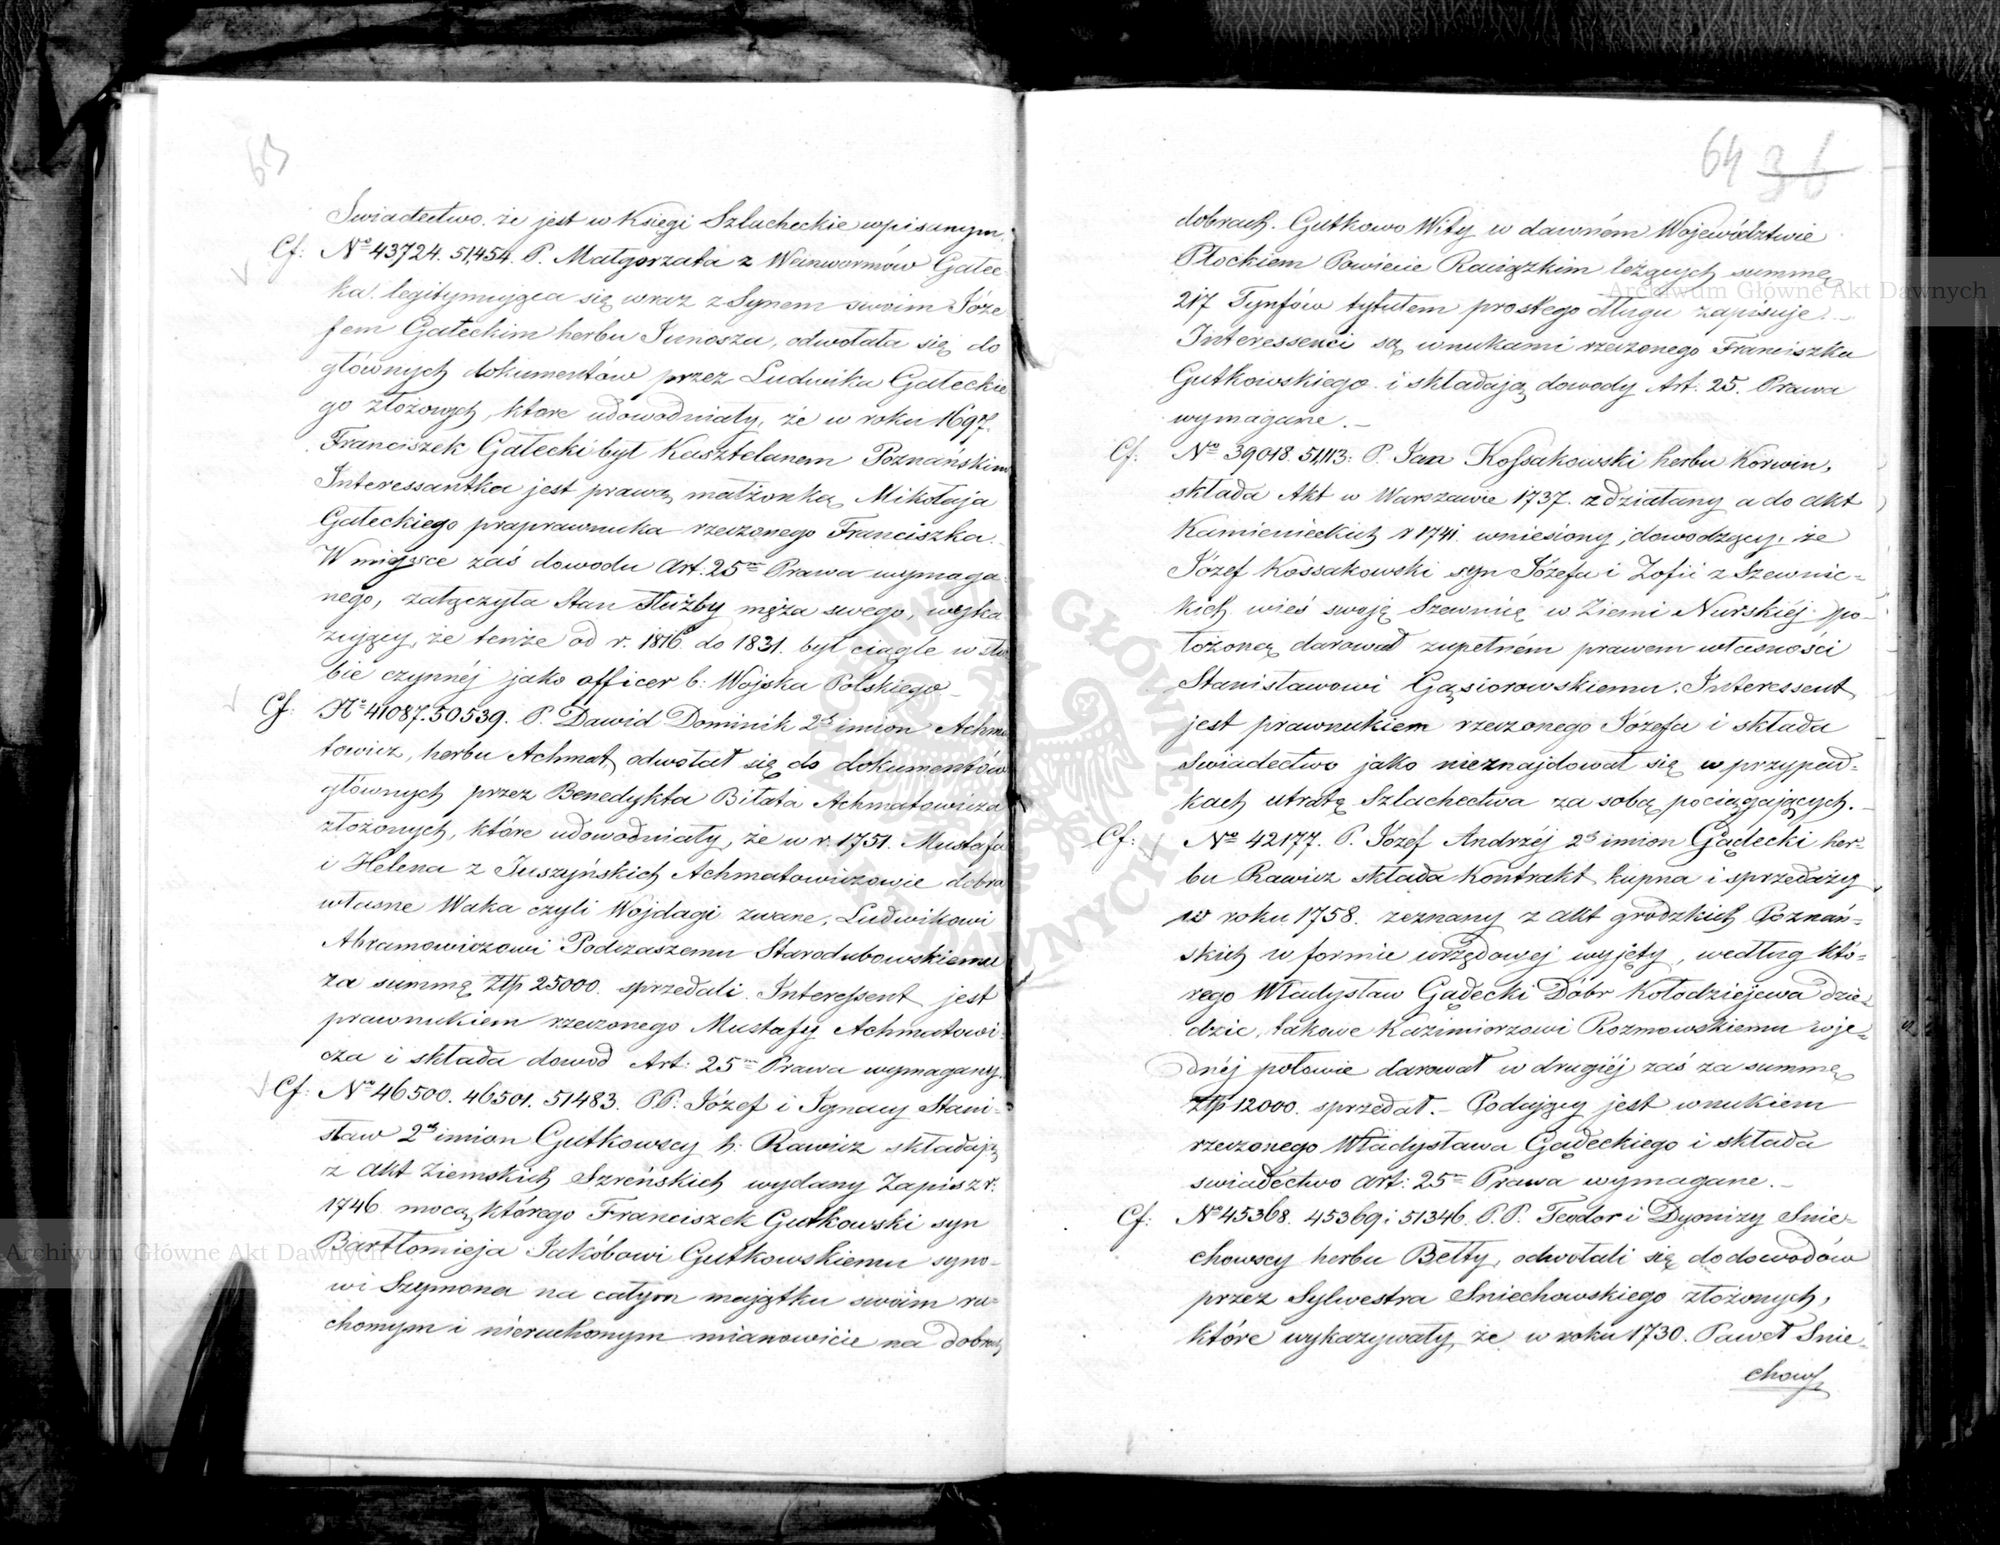 63
Świadectwo że jest w Księgi Szlacheckie wpisanym.
Cf: Nº 43724. 51,454. P. Małgorzata z Weinwormów Gałec-
ka legitymująca się wraz z Synem swoim Józe
fem Gałeckim herbu Junosza, odwołała się do
głównych dokumentów przez Ludwika Gałeckie
go złożonych, które udowodniały, że w roku 1697.
Franciszek Gałecki był Kasztelanem Poznańskim
Interessantka jest prawą małżonką Mikołaja
Gałeckiego praprawnuka rzeczonego Franciszka.
W miejsce zaś dowodu Art: 25m Prawa wymaga-
nego, załączyła Stan służby męża swego, wyka
zujący, że tenże od r. 1816. do 1831. był ciągle w słu
bie czynnéj jako officer b: Wojska Polskiego _
Cf: Nº 41087. 50539. P. Dawid Dominik 2ch imion Achma
towicz, herbu Achmat, odwołał się do dokumentów
głównych przez Benedykta Biłała Achmatowicza
złożonych, które udowodniały, że w r. 1751. Mustafa
i Helena z Juszyńskich Achmatowiczowie dobra
własne Waka czyli Wojdagi zwane, Ludwikowi
Abramowiczowi Podczaszemu Starodubowskiemu
za summę złp 25000. sprzedali. Interessent jest
prawnukiem rzeczonego Mustafy Achmatowi-
cza i składa dowód Art: 25m Prawa wymagany.
Cf: Nº 46500. 46501. 51483. P.P. Józef i Ignacy Stani-
sław 2ch imion Gutkowscy h: Rawicz składają
z Akt Ziemskich Szreńskich wydany Zapis z r.
1746. mocą którego Franciszek Gutkowski syn
Bartłomieja Jakóbowi Gutkowskiemu syno-
wi Szymona na całym majątku swoim ru-
chomym i nieruchomym mianowicie na dobrach
64 36
dobrach. Gutkowo Wity w dawném Województwie
Płockiem Powiecie Raciązkim leżących summę
217 Tynfów tytułem prostego długu zapisuje. _
Interessenci są wnukami rzeczonego Franciszka
Gutkowskiego i składają dowody Art: 25. Prawa
wymagane. _
Cf: Nº 39018. 51,113. P. Jan Kossakowski herbu Korwin,
składa Akt w Warszawie 1737. zdziałany a do akt
Kamienieckich r 1741. wniesiony, dowodzący, że
Józef Kossakowski syn Józefa i Zofii z Szewnic-
kich wieś swoję Szewnię w Ziemi Nurskiéj po-
łożoną darował zupełném prawem własności
Stanisławowi Gąsiorowskiemu. Interessent
jest prawnukiem rzeczonego Józefa i składa
Świadectwo jako nieznajdował się w przypad-
kach utratę Szlachectwa za sobą pociągających. _
Cf: Nº 42177. P. Józef Andrzéj 2ch imion Gądecki her-
bu Rawicz składa Kontrakt kupna i sprzedaży
w roku 1758. zeznany z akt grodzkich Poznań-
skich w formie urzędowej wyjęty, według któ-
rego Władysław Gądecki Dóbr Kołodziejewa dzie-
dzic, takowe Kazimierzowi Rozmowskiemu w je-
dnéj połowie darował w drugiéj zaś za summę
złp 12000. sprzedał. _ Podający jest wnukiem
rzeczonego Władysława Gądeckiego i składa
świadectwo art: 25m Prawa wymagane. _
Cf: Nº 45368. 45369 i 51346. P.P. Teodor i Dyonizy Snie-
chowscy herbu Bełty, odwołali się do dowodów
przez Sylwestra Sniechowskiego złożonych,
które wykazywały, że w roku 1730. Paweł Snie-
chows
Archiwum Główne Akt Dawnych
Archiwum Główne Akt Dawnych
ARCHIWUM GŁÓWNE AKT DAWNYCH